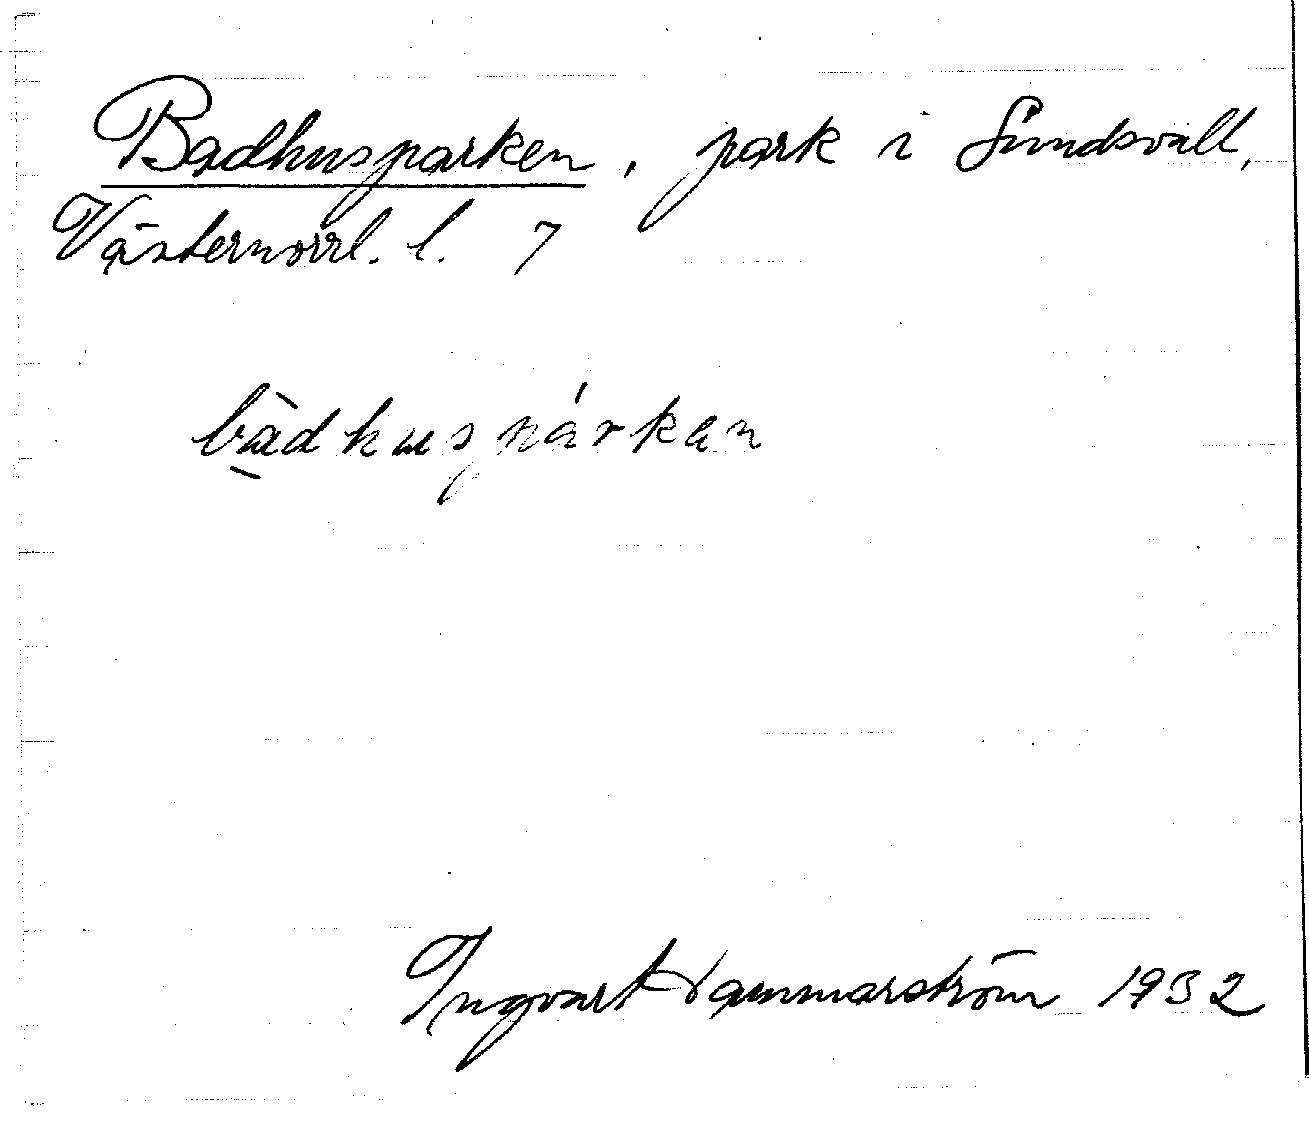 Badhusparken, park i Sundsvall,
Västernorrl. l. 7
bàdhuspárkan
Ingvart Hammarström 1932